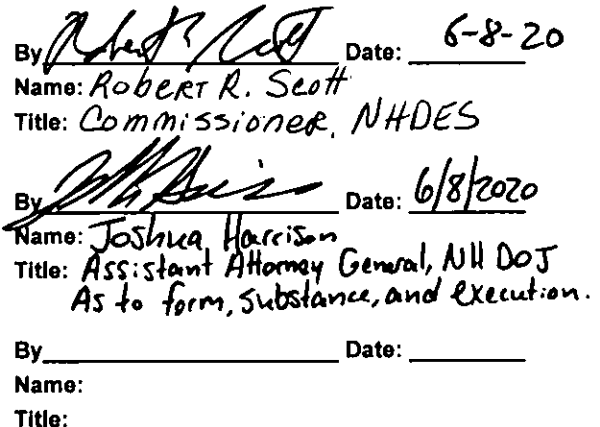 By Robert R Scott Date: 6-8-20
Name: Robert R. Scott
Title: Commissioner, NHDES
By Date: 6/8/2020
Name: Joshua Harrison
Title: Assistant Attorney General, NH DOJ
As to form, substance, and execution.
By Date:
Name:
Title: